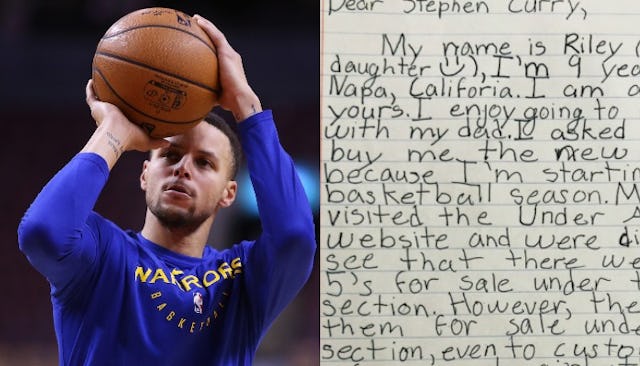 WARRIORS
BASKETBALL
Dear Stephen Curry,
My name is Riley
daughter ☺), I'm 9 yea
Napa, Califoria. I am a
yours. I enjoy going to
with my dad. I asked
buy me the new
because I'm startin
basketball season. M
visited the Under A
website and were di
see that there we
5's for sale under t
section. However, the
them for sale unde
section, even to custo